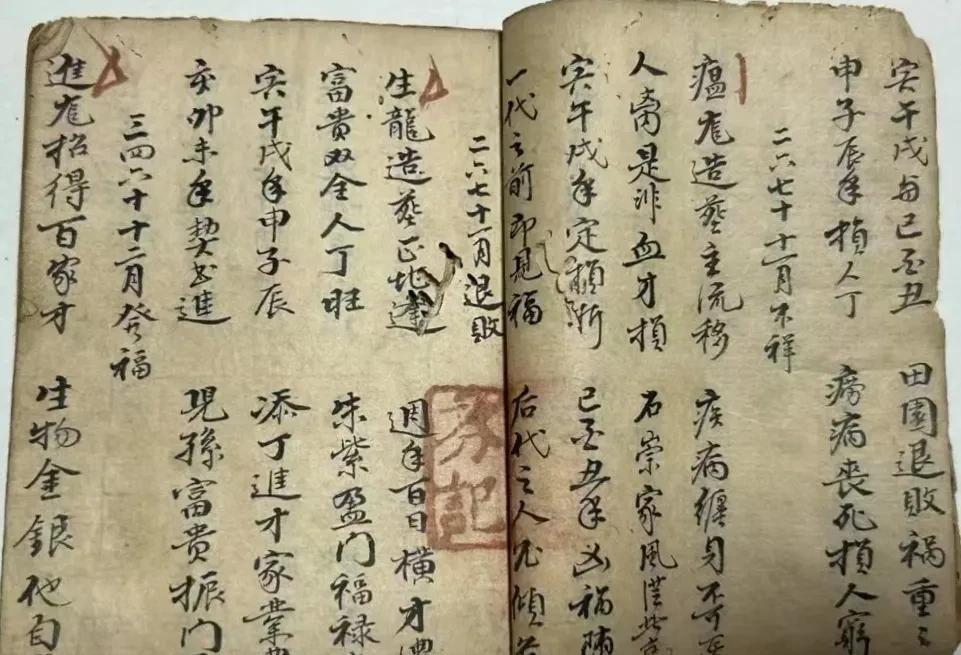 寅午戌与巳酉丑 田園退敗禍重々
申子辰年損人丁 癆病喪死損人窮
二六七十十一月不祥
瘟造葬主流移 疾病纏身不可
人是非血才損 石崇家風
寅午戌年定 巳酉丑年凶禍
一代之前即見福 后代之人傾
二六七十一月退敗
生龍造葬正地逢 週年百日橫才
富貴双全人丁旺 朱紫盈门福禄
寅午戌年申子辰 添丁進才家業
亥卯未年契書進 児孫富貴振门
三四六十十二月發福
進招得百家才 生物金銀他自
記